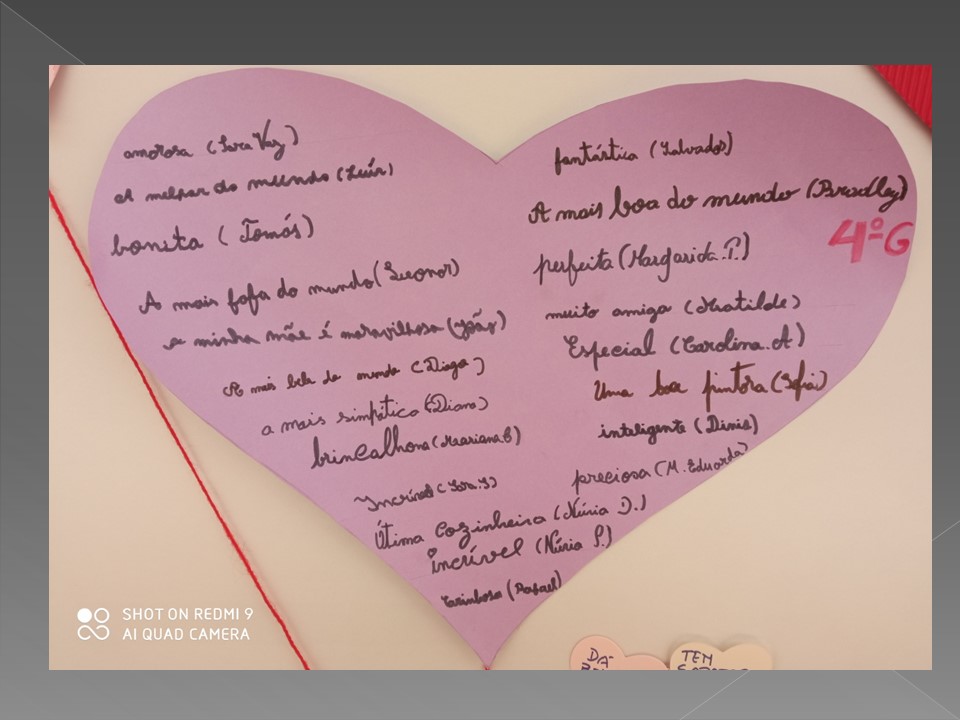 amorosa (Sara Vaz)
A melhor do mundo (Luís)
bonita (Tomás)
A mais fofa do mundo (Leonor)
a minha mãe é maravilhosa (João)
A mais bela do mundo (Diogo)
a mais simpática (Diana)
brincalhona (Mariana B)
Incrível (Sara S)
Útima Cozinheira (Núria D.)
incrível (Núria P.)
Carinhosa (Rafael)
fantástica (Salvador)
A mais boa do mundo (Bradley)
4ºG
perfeita (Margarida.P.)
muito amiga (Matilde)
Especial (Carolina.A)
Uma boa pintora (Sofia)
inteligente (Dinis)
preciosa (M. Eduarda)
SHOT ON REDMI 9
AI QUAD CAMERA
DA-
TEM